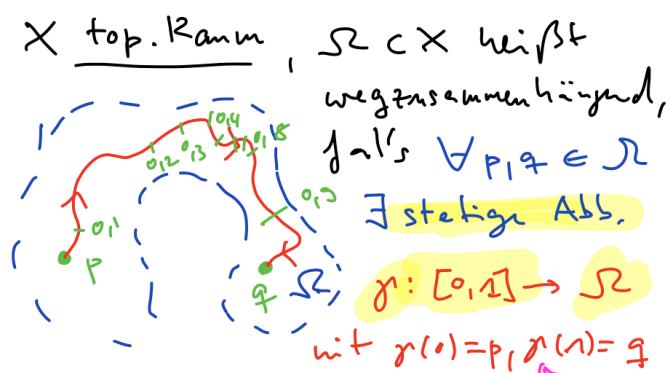 X top. Raum, Ω ⊂ X heißt
wegzusammenhängend,
fal's ∀ p, q ∈ Ω
∃ stetige Abb.
γ: [0,1] → Ω
mit γ(0)=p, γ(1)=q
0,1
0,2
0,3
0,4
0,5
0,9
p
q
Ω